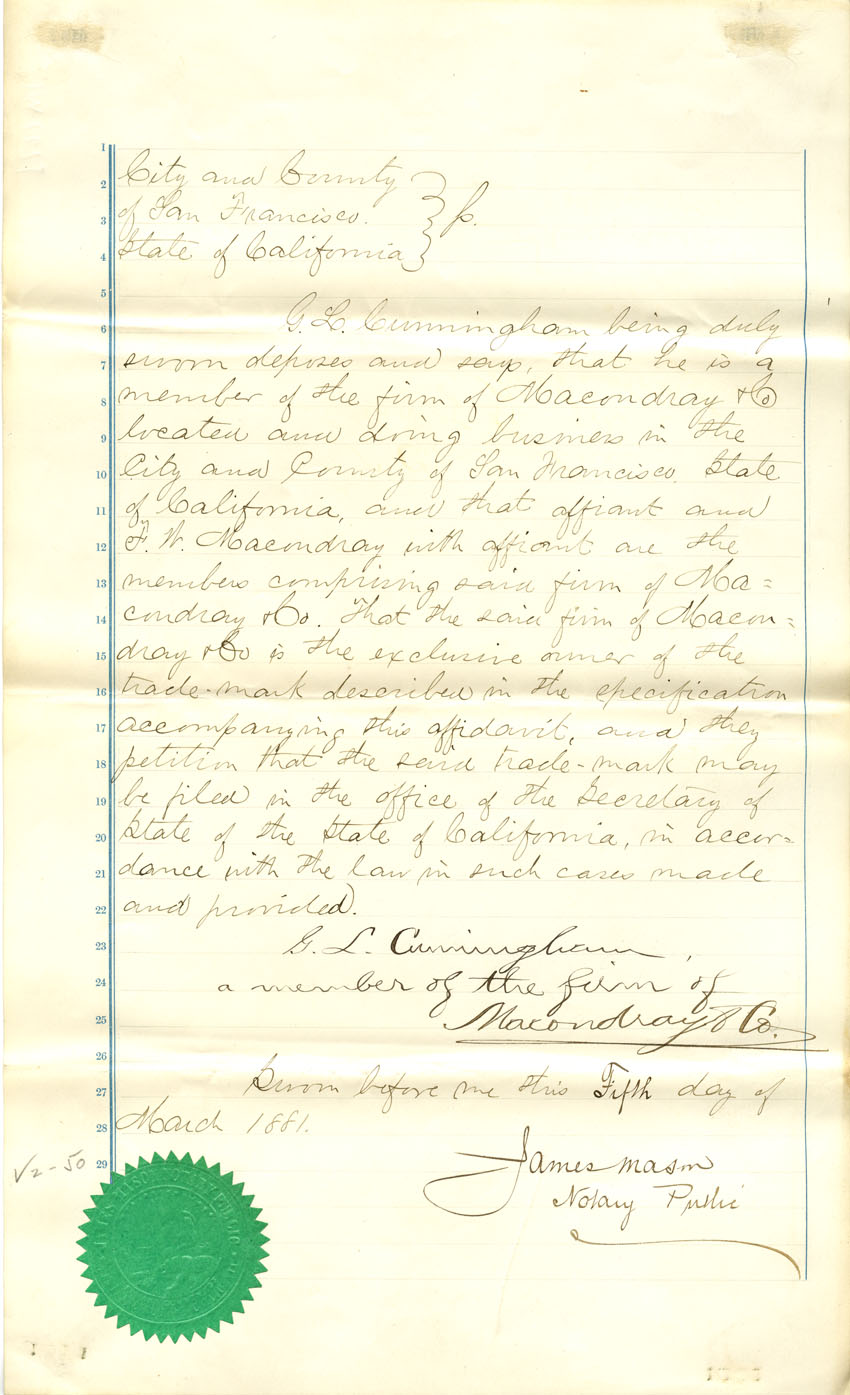 City and County
of San Francisco. } ss.
State of California
G. L. Cunningham being duly
sworn deposes and says, that he is a
member of the firm of Macondray & Co
located and doing business in the
City and County of San Francisco, State
of California, and that affiant and
F. W. Macondray with affiant are the
members comprising said firm of Ma=
condray & Co. That the said firm of Macon=
dray & Co is the exclusive owner of the
trade-mark described in the specification
accompanying this affidavit, and they
petition that the said trade-mark may
be filed in the office of the Secretary of
State of the State of California, in accor-
dance with the law in such cases made
and provided.
G. L. Cunningham,
a member of the firm of
Macondray & Co.
Sworn before me this Fifth day of
March 1881.
James Mason
Notary Public
1
2
3
4
5
6
7
8
9
10
11
12
13
14
15
16
17
18
19
20
21
22
23
24
25
26
27
28
29
√2-50